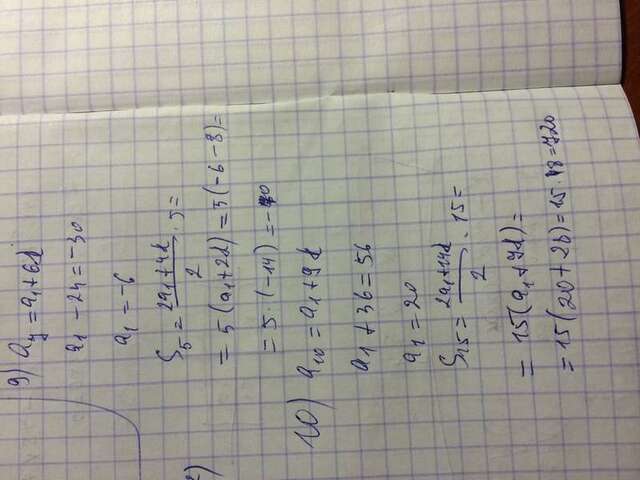 9) a₇ = a₁ + 6d
a₁ - 24 = -30
a₁ = -6
S₅ = (2a₁ + 4d)/2 · 5 =
= 5(a₁ + 2d) = 5(-6 - 8) =
= 5 · (-14) = -70
10) a₁₀ = a₁ + 9d
a₁ + 36 = 56
a₁ = 20
S₁₅ = (2a₁ + 14d)/2 · 15 =
= 15(a₁ + 7d) =
= 15(20 + 28) = 15 · 48 = 720